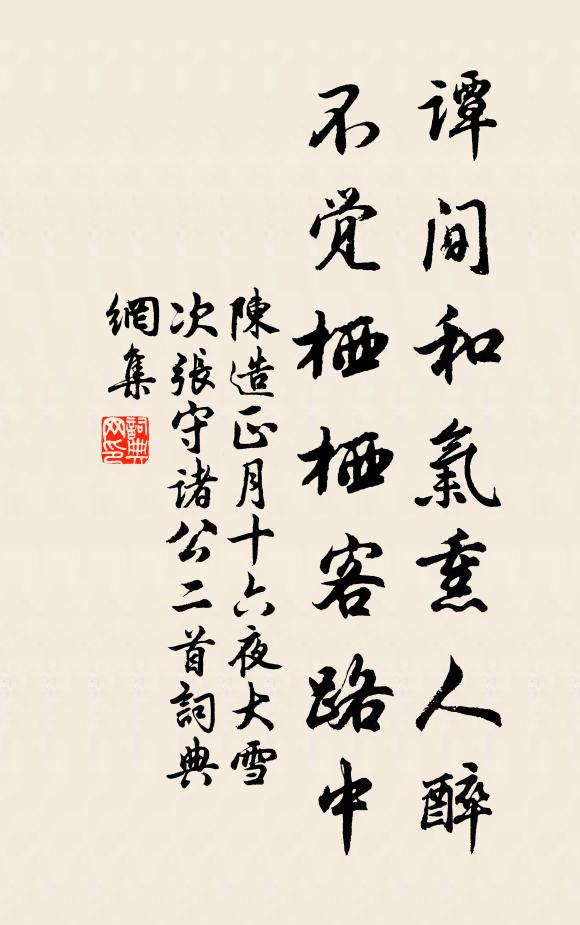 谭间和氣熏人醉
不觉栖栖客路中
陳造正月十六夜大雪
次張守诸公二首詞典
網集
詞典網印